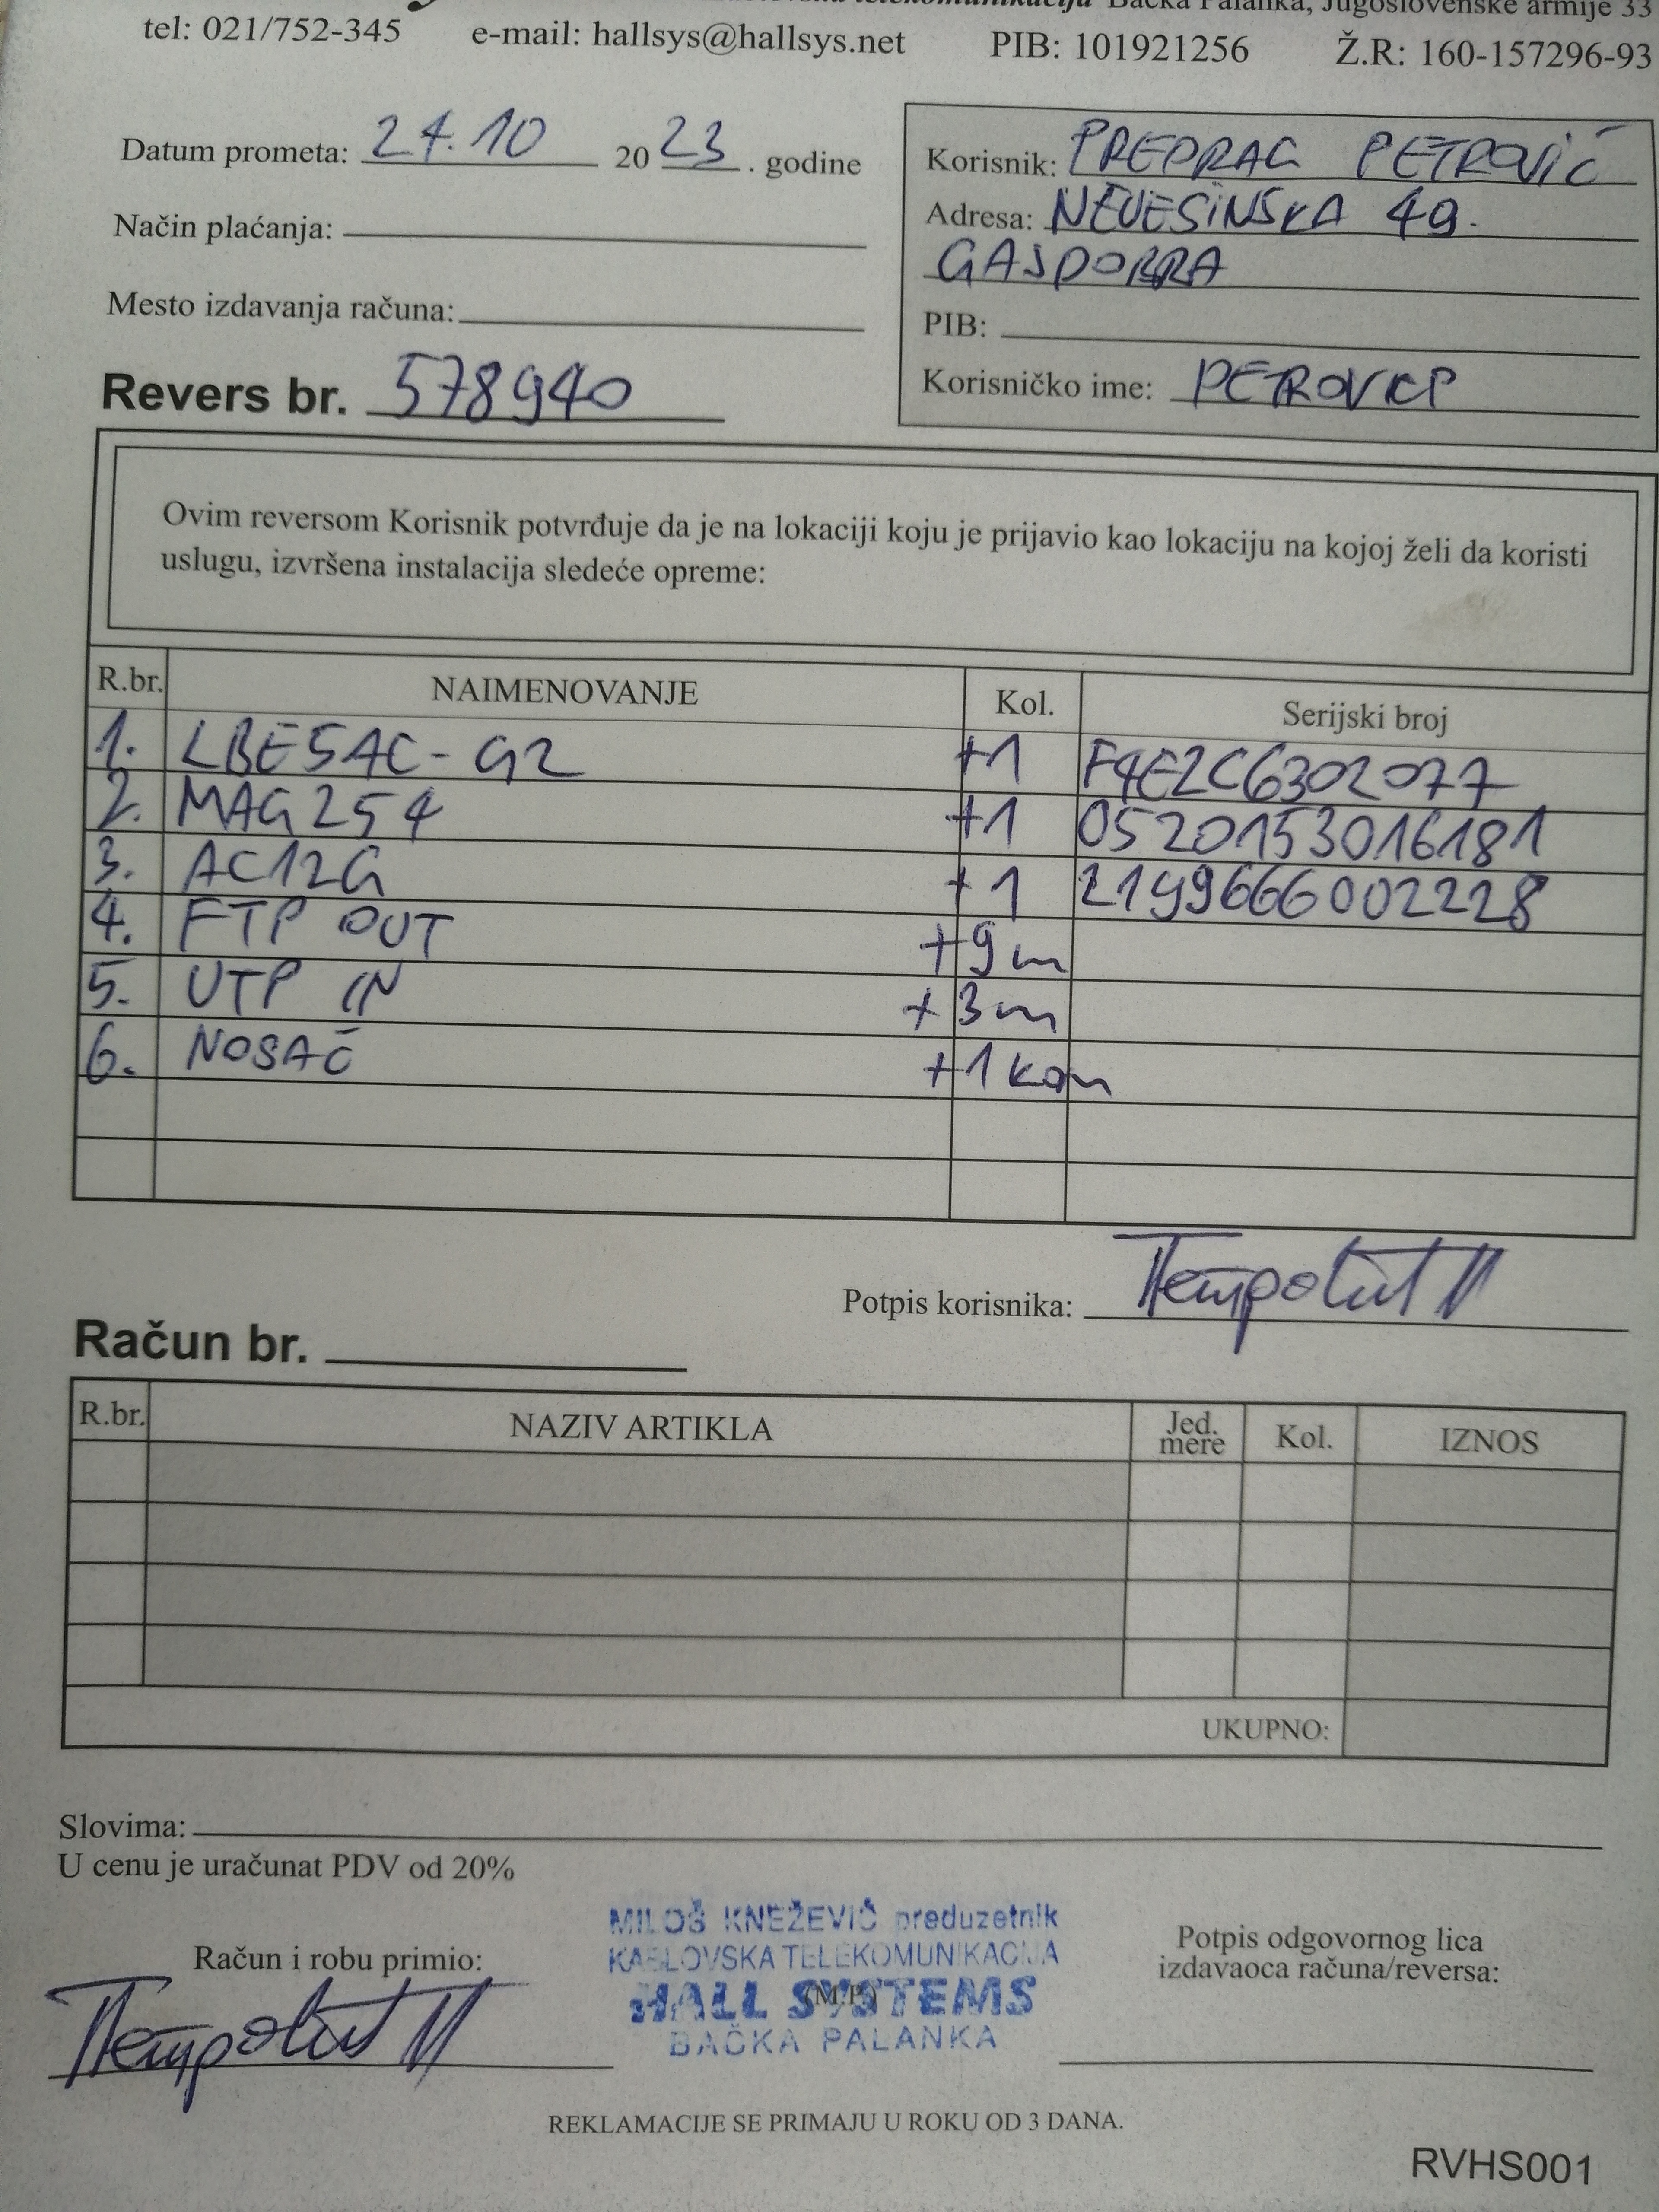 telekomunikacija Bačka Palanka, Jugoslovenske armije 33
tel: 021/752-345 e-mail: hallsys@hallsys.net PIB: 101921256 Ž.R: 160-157296-93
Datum prometa: 27.10 2023. godine
Način plaćanja:
Mesto izdavanja računa:
Revers br. 578940
Korisnik: PREDRAG PETROVIĆ
Adresa: NEVESINSKA 49.
GAJDOBRA
PIB:
Korisničko ime: PETROVICP
Ovim reversom Korisnik potvrđuje da je na lokaciji koju je prijavio kao lokaciju na kojoj želi da koristi
uslugu, izvršena instalacija sledeće opreme:
R.br. NAIMENOVANJE Kol. Serijski broj
1. LBE5AC-G2 +1 F4E2C6302077
2. MAG254 +1 0520153016181
3. AC12G +1 2199666002228
4. FTP OUT +9m
5. UTP IN +3m
6. NOSAČ +1 kom
Potpis korisnika:
Račun br.
R.br. NAZIV ARTIKLA Jed. mere Kol. IZNOS
UKUPNO:
Slovima:
U cenu je uračunat PDV od 20%
Račun i robu primio:
MILOŠ KNEŽEVIĆ preduzetnik
KABLOVSKA TELEKOMUNIKACIJA
HALL SYSTEMS
(M.P.)
BAČKA PALANKA
Potpis odgovornog lica
izdavaoca računa/reversa:
REKLAMACIJE SE PRIMAJU U ROKU OD 3 DANA.
RVHS001